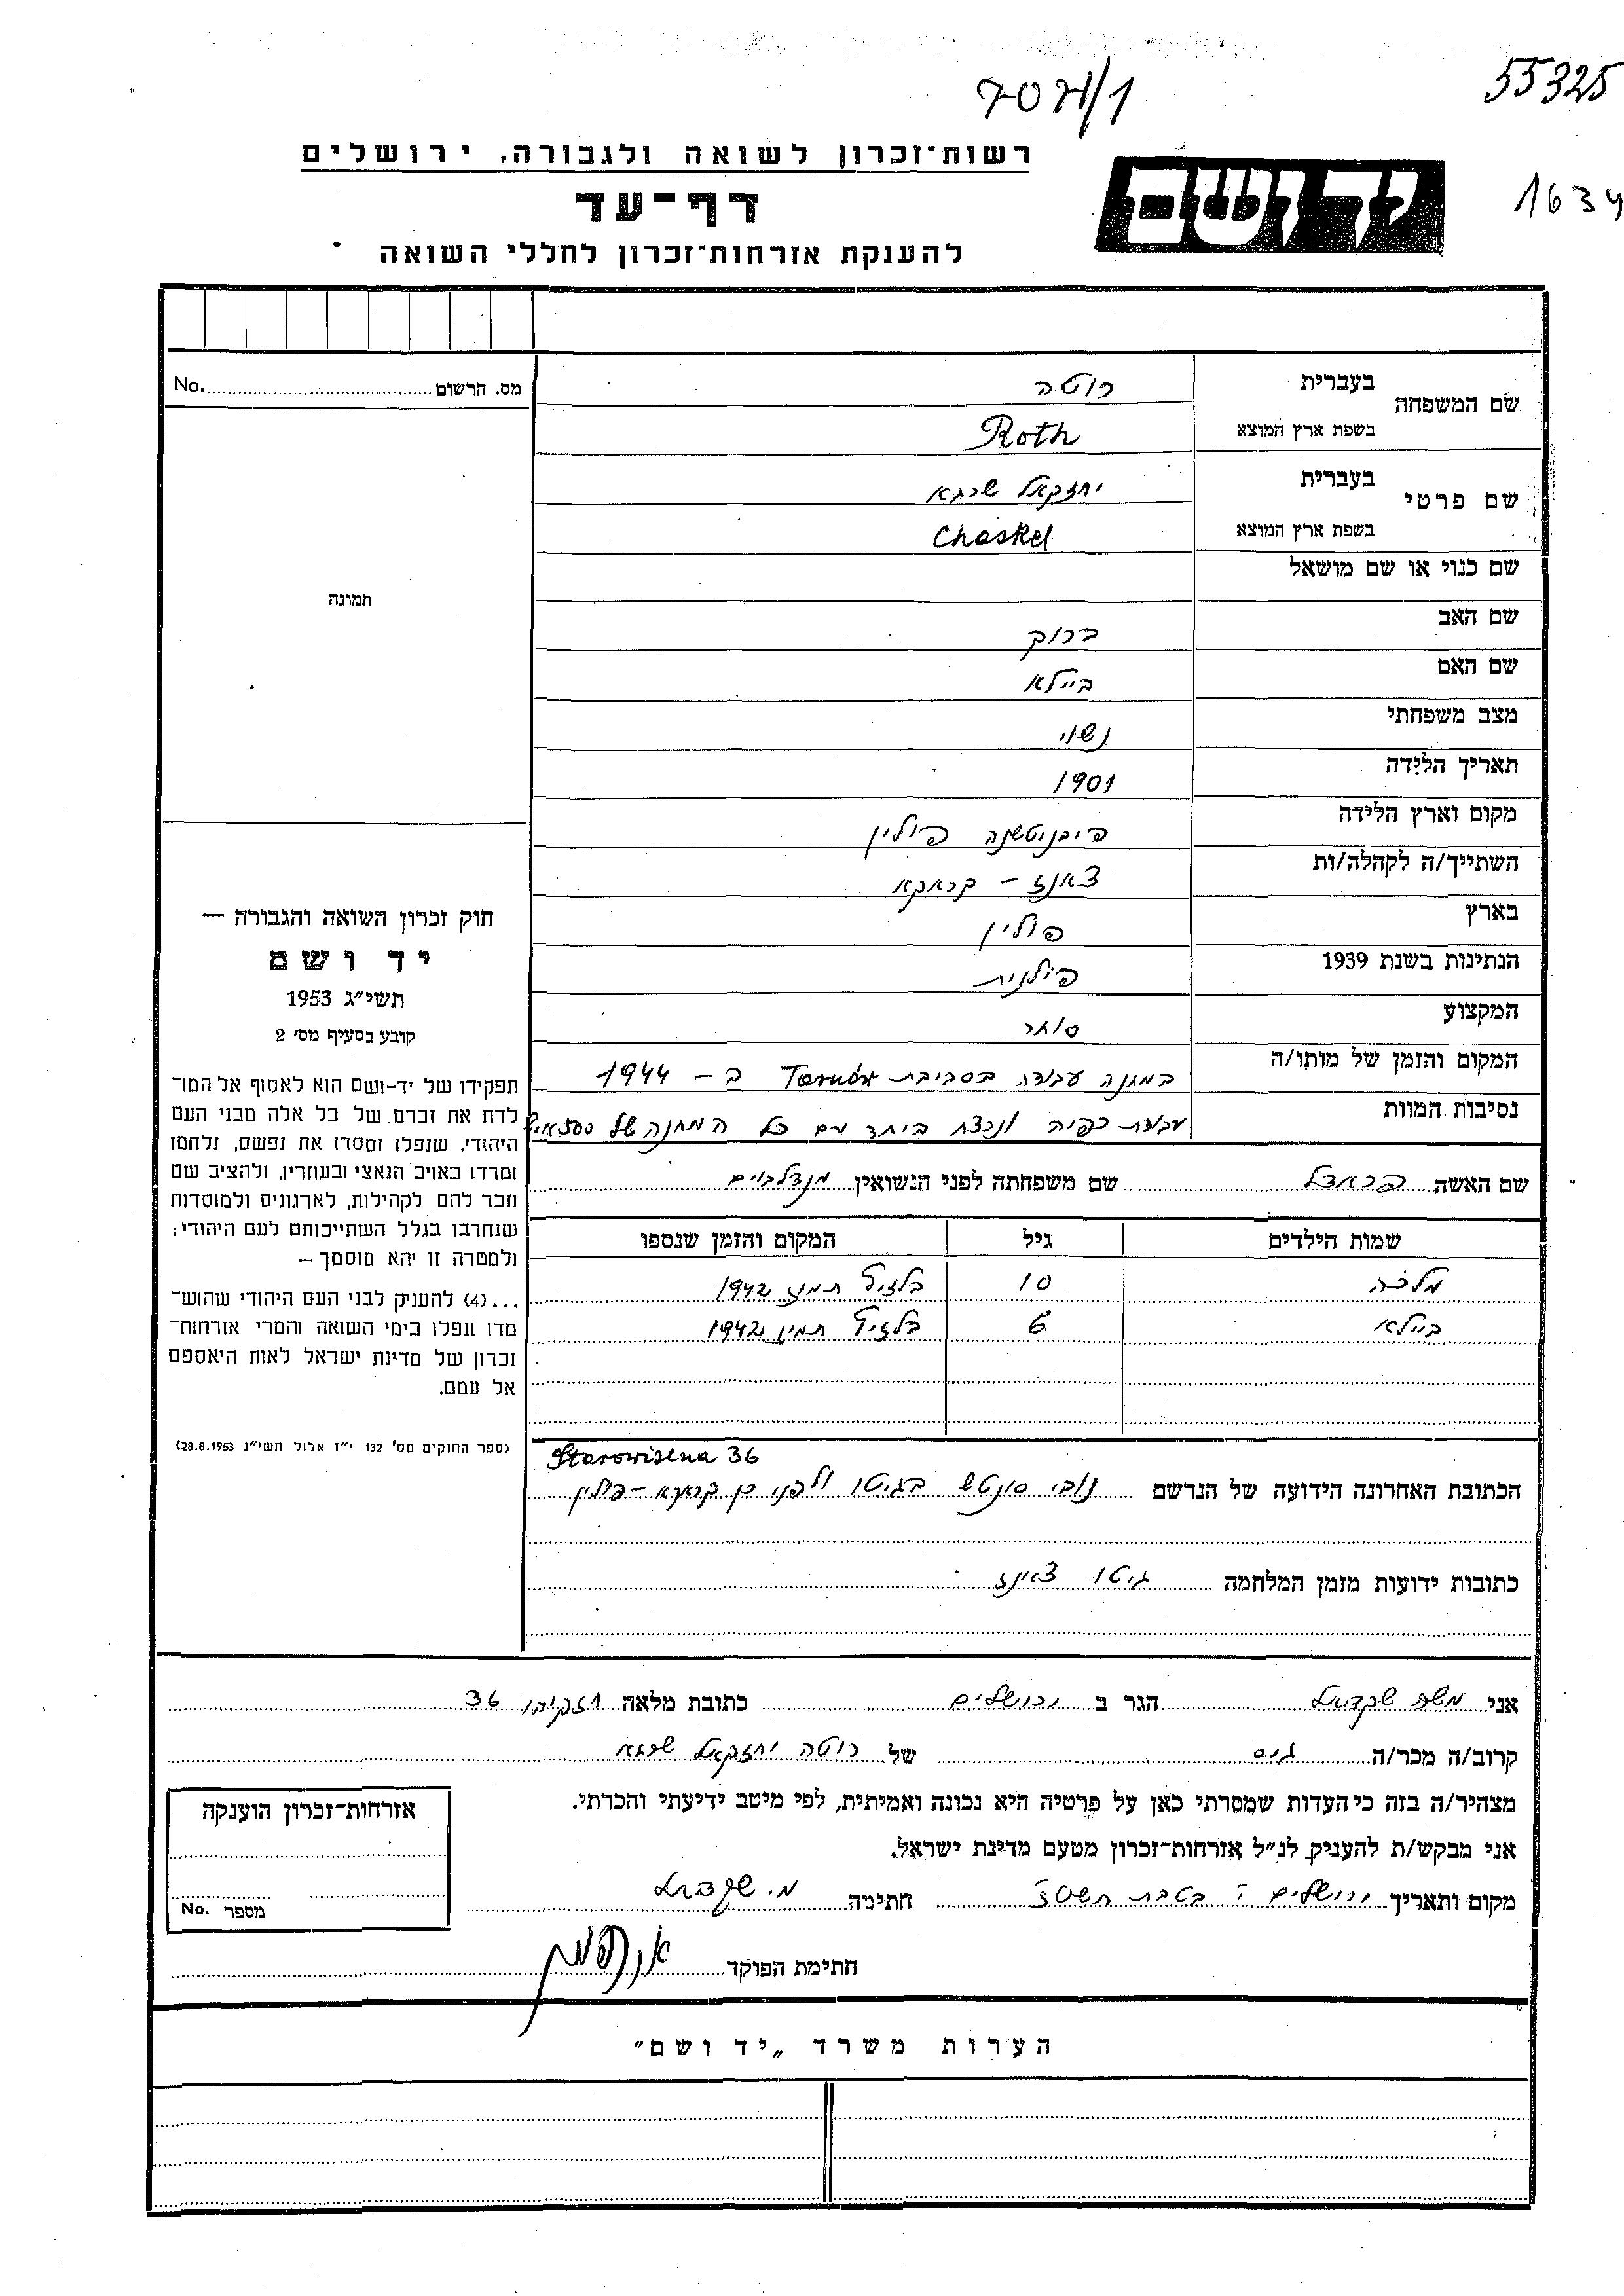 707א/1
55325
1634
יד ושם
רשות־זכרון לשואה ולגבורה, ירושלים
דף־עד
להענקת אזרחות־זכרון לחללי השואה
מס. הרשום No.
תמונה
חוק זכרון השואה והגבורה —
יד ושם
תשי״ג 1953
קובע בסעיף מס׳ 2
תפקידו של יד־ושם הוא לאסוף אל המו־
לדת את זכרם של כל אלה מבני העם
היהודי, שנפלו ומסרו את נפשם, נלחמו
ומרדו באויב הנאצי ובעוזריו, ולהציב שם
וזכר להם לקהילות, לארגונים ולמוסדות
שנחרבו בגלל השתייכותם לעם היהודי;
ולמטרה זו יהא מוסמך —
...(4) להעניק לבני העם היהודי שהוש־
מדו ונפלו בימי השואה והמרי אזרחות־
זכרון של מדינת ישראל לאות היאספם
אל עמם.
(ספר החוקים מס׳ 132 י״ז אלול תשי״ג 28.8.1953)
שם המשפחה בעברית רוטה
בשפת ארץ המוצא Roth
שם פרטי בעברית יחזקאל שרגא
בשפת ארץ המוצא Chaskel
שם כנוי או שם מושאל
שם האב ברוך
שם האם ביילא
מצב משפחתי נשוי
תאריך הלידה 1901
מקום וארץ הלידה פיבניטשנה פולין
השתייך/ה לקהלה/ות צאנז - קראקא
בארץ פולין
הנתינות בשנת 1939 פולנית
המקצוע סוחר
המקום והזמן של מותו/ה במחנה עבודה בסביבת Tarnów ב - 1944
נסיבות המוות עבודת כפיה ונרצח ביחד עם כל המחנה של 500 איש
שם האשה פראדל שם משפחתה לפני הנשואין מנדלבוים
שמות הילדים גיל המקום והזמן שנספו
מלכה 10 בלזיץ תמוז 1942
ביילא 6 בלזיץ תמוז 1942
Starowislna 36
הכתובת האחרונה הידועה של הנרשם נובי סונטש בגיטו ולפני כן קראקא - פולין
כתובות ידועות מזמן המלחמה גיטו צאנז
אני משה הגר ב ירושלים כתובת מלאה חזקיהו 36
קרוב/ה מכר/ה גיס של רוטה יחזקאל שרגא
מצהיר/ה בזה כי העדות שמסרתי כאן על פרטיה היא נכונה ואמיתית, לפי מיטב ידיעתי והכרתי.
אני מבקש/ת להעניק לנ״ל אזרחות־זכרון מטעם מדינת ישראל.
מקום ותאריך ירושלים י׳ בטבת חתימה מ.
חתימת הפוקד
אזרחות־זכרון הוענקה
מספר No.
הערות משרד „יד ושם״